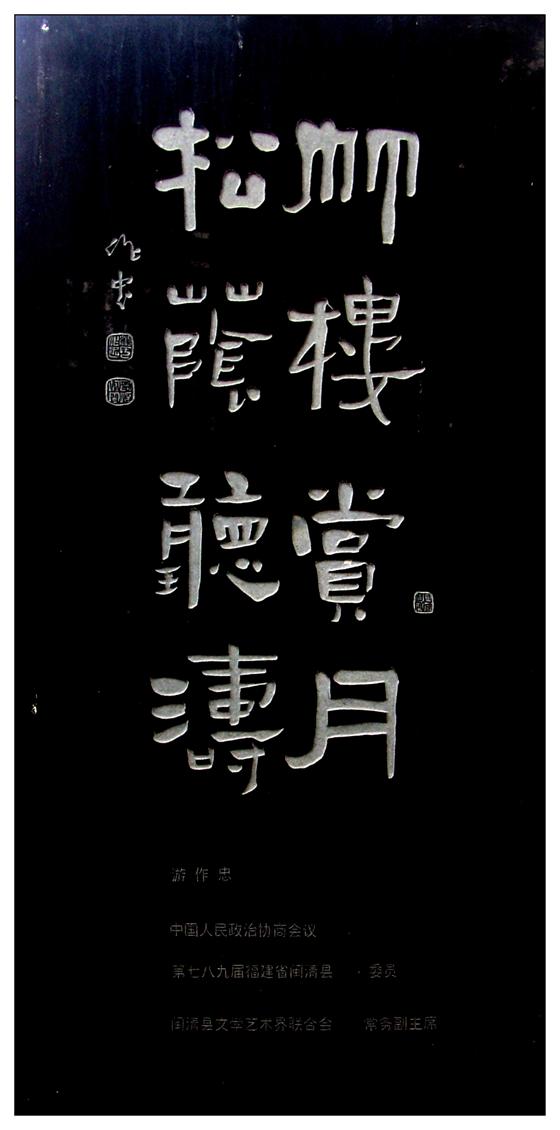 竹樓賞月
松蔭聽濤
作忠
游作忠
中国人民政治协商会议
第七八九届福建省闽清县 委员
闽清县文学艺术界联合会 常务副主席